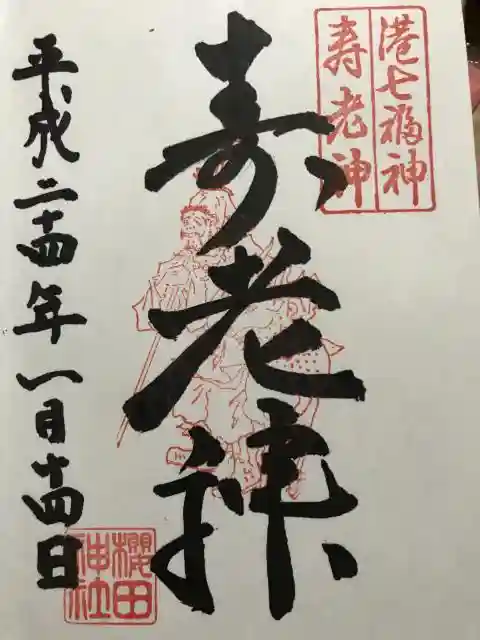 港七福神
寿老神
寿老神
平成二十四年一月十四日
櫻田
神社